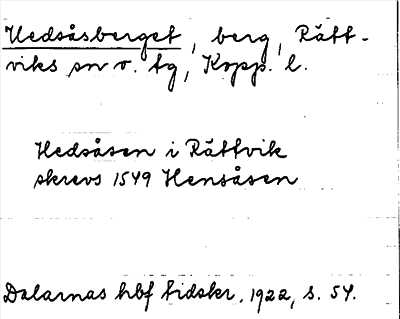 Hedsåsberget, berg, Rätt-
viks sn o. tg, Kopp. l.
Hedsåsen i Rättvik
skrevs 1549 Hensåsen
Dalarnas hbf tidskr. 1922, s. 54.